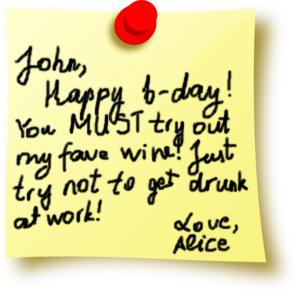 John,
Happy b-day!
You MUST try out
my fave wine! Just
try not to get drunk
at work!
Love,
Alice